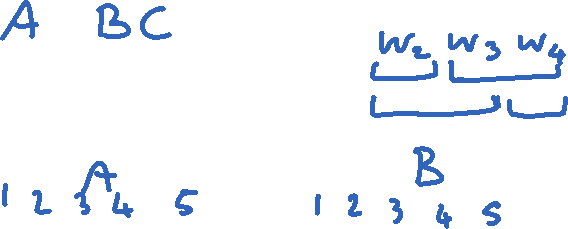 A BC
W2 W3 W4
A B
1 2 3 4 5 1 2 3 4 5